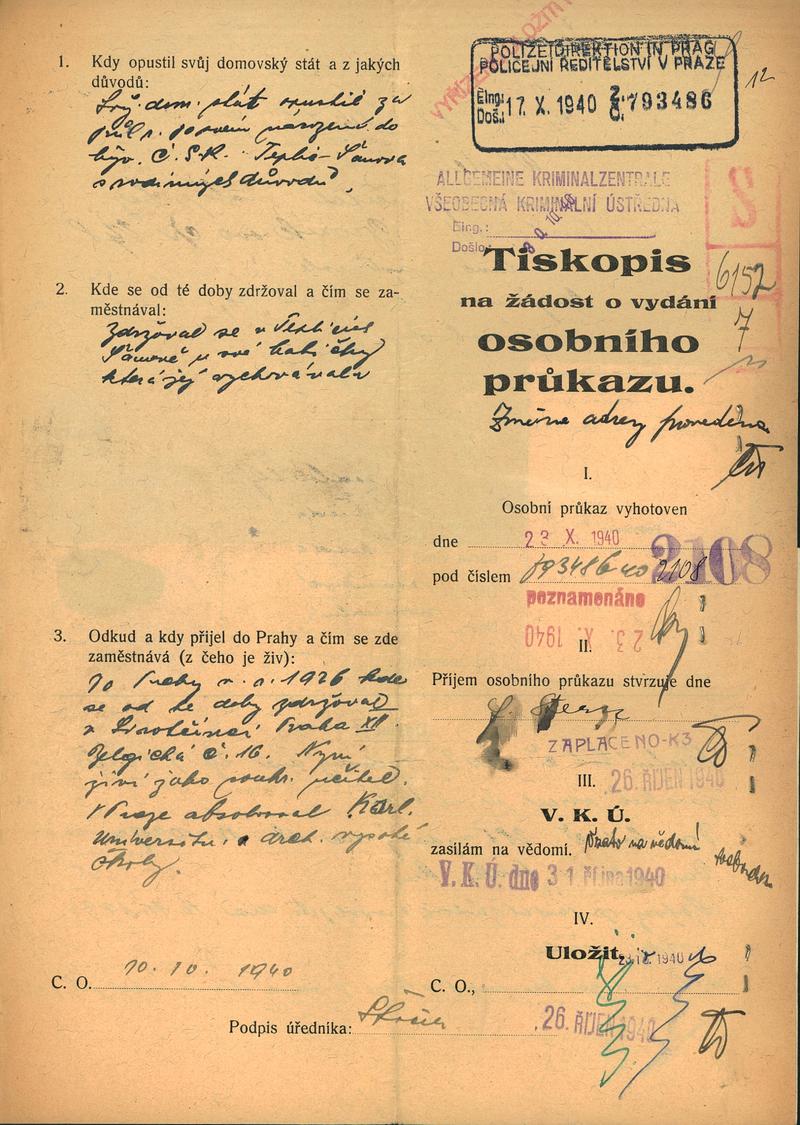 1. Kdy opustil svůj domovský stát a z jakých
důvodů:
Svůj dom. stát opustil za
půl r. po svém narození do
býv. Č.S.R. Teplic-Šanova
z rodinných důvodů,
2. Kde se od té doby zdržoval a čím se za-
městnával:
Zdržoval se v Teplicích
Šanově u své babičky
která jej vychovávala
3. Odkud a kdy přijel do Prahy a čím se zde
zaměstnává (z čeho je živ):
Do Prahy v r. 1926 kde
se od té doby zdržoval
v Sirotčinci Praha XII.
Belgická č. 16. Nyní
živí jako soukr. učitel.
V Praze absolvoval Karl.
Universitu a arch. vysoké
školy.
C. O. 10. 10. 1940
Podpis úředníka:
POLIZEIDIREKTION IN PRAG
POLICEJNÍ ŘEDITELSTVÍ V PRAZE
Eing:
Doš.: 17. X. 1940 Z. Č. 793486
12
ALLGEMEINE KRIMINALZENTRALE
VŠEOBECNÁ KRIMINÁLNÍ ÚSTŘEDNA
Eing.:
Došlo:
S
6152
7
Tiskopis
na žádost o vydání
osobního
průkazu.
Změna adresy provedena
I.
Osobní průkaz vyhotoven
dne 23 X. 1940
2108
pod číslem 793486 40 2108
poznamenáno
23. X. 1940
II.
Příjem osobního průkazu stvrzuje dne
ZAPLACENO-K3
III. 26. ŘÍJEN 1940
V. K. Ú.
zasílám na vědomí. Vzato na vědomí
V. K. Ú. dne 31. října 1940
IV.
Uložit,
C. O.,
26. ŘÍJEN 1940